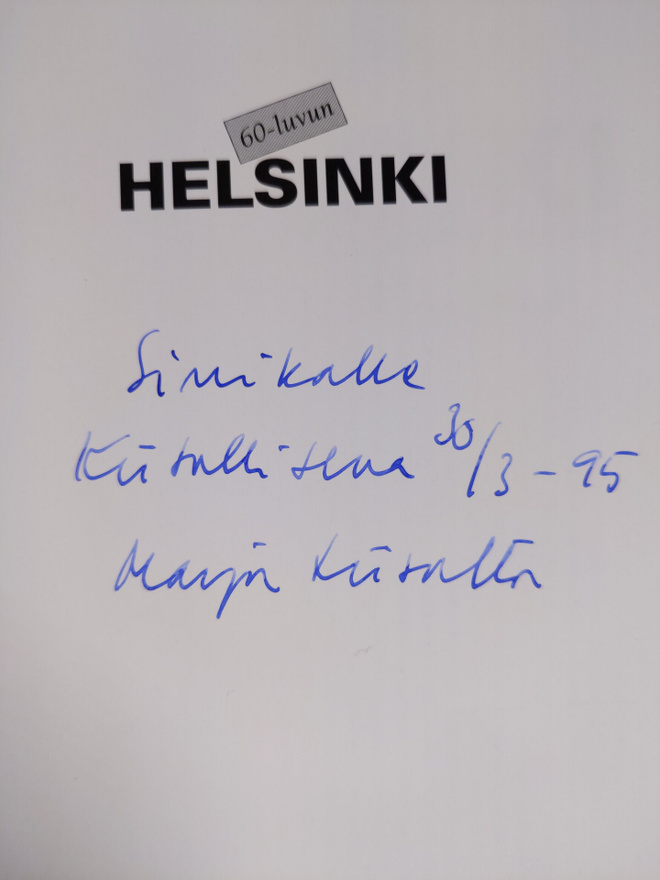 60-luvun
HELSINKI
Sinikalle
Kiitollisena 30/3 - 95
Marja